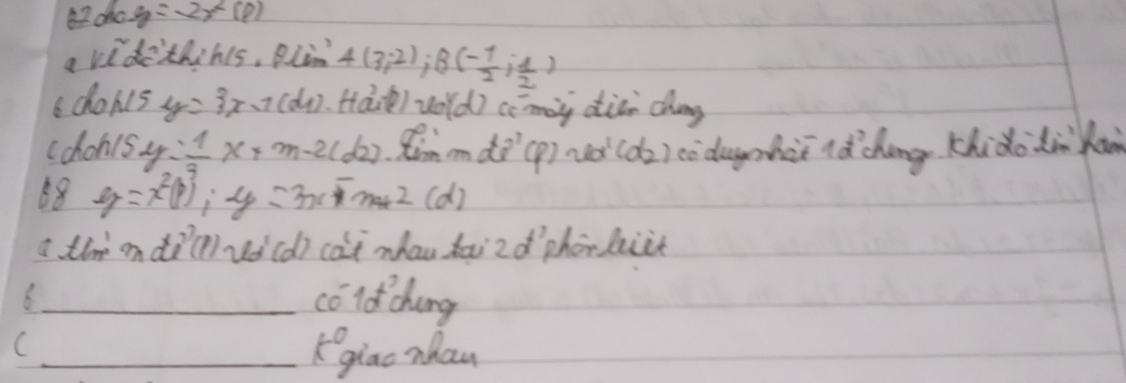 B7 cho y = -2x² (P)
a vẽ đồ thị h/s. Điểm A(3;2); B(-1/2; 1/2)
b cho h/s y = 3x - 7 (d1). Hỏi (P) và (d) có mấy điểm chung
c cho h/s y = x + m - 2 (d2). tìm m để (P) và (d2) có duy nhất 1 đ' chung. Khi đó tìm
B8 y = x² (P); y = 3x m + 2 (d)
a tìm m để (P) và (d) cắt nhau tại 2 đ' phân biệt
b ____________ có 1 đ' chung
c ____________ k⁰ giao nhau